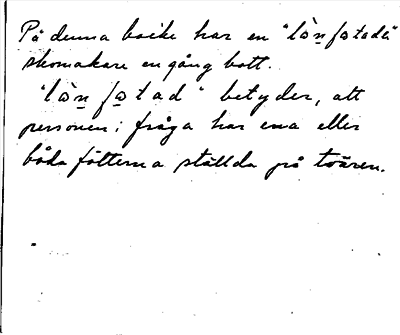 På denna backe har en "lò̱nfɷtade"
skomakare en gång bott.
"lò̱n fɷ̱tad" betyder, att
personen i fråga har ena eller
båda fötterna ställda på tvären.